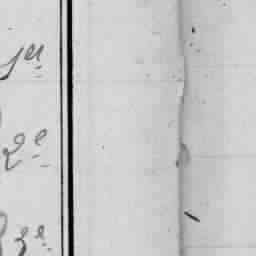 1er
2e
3e